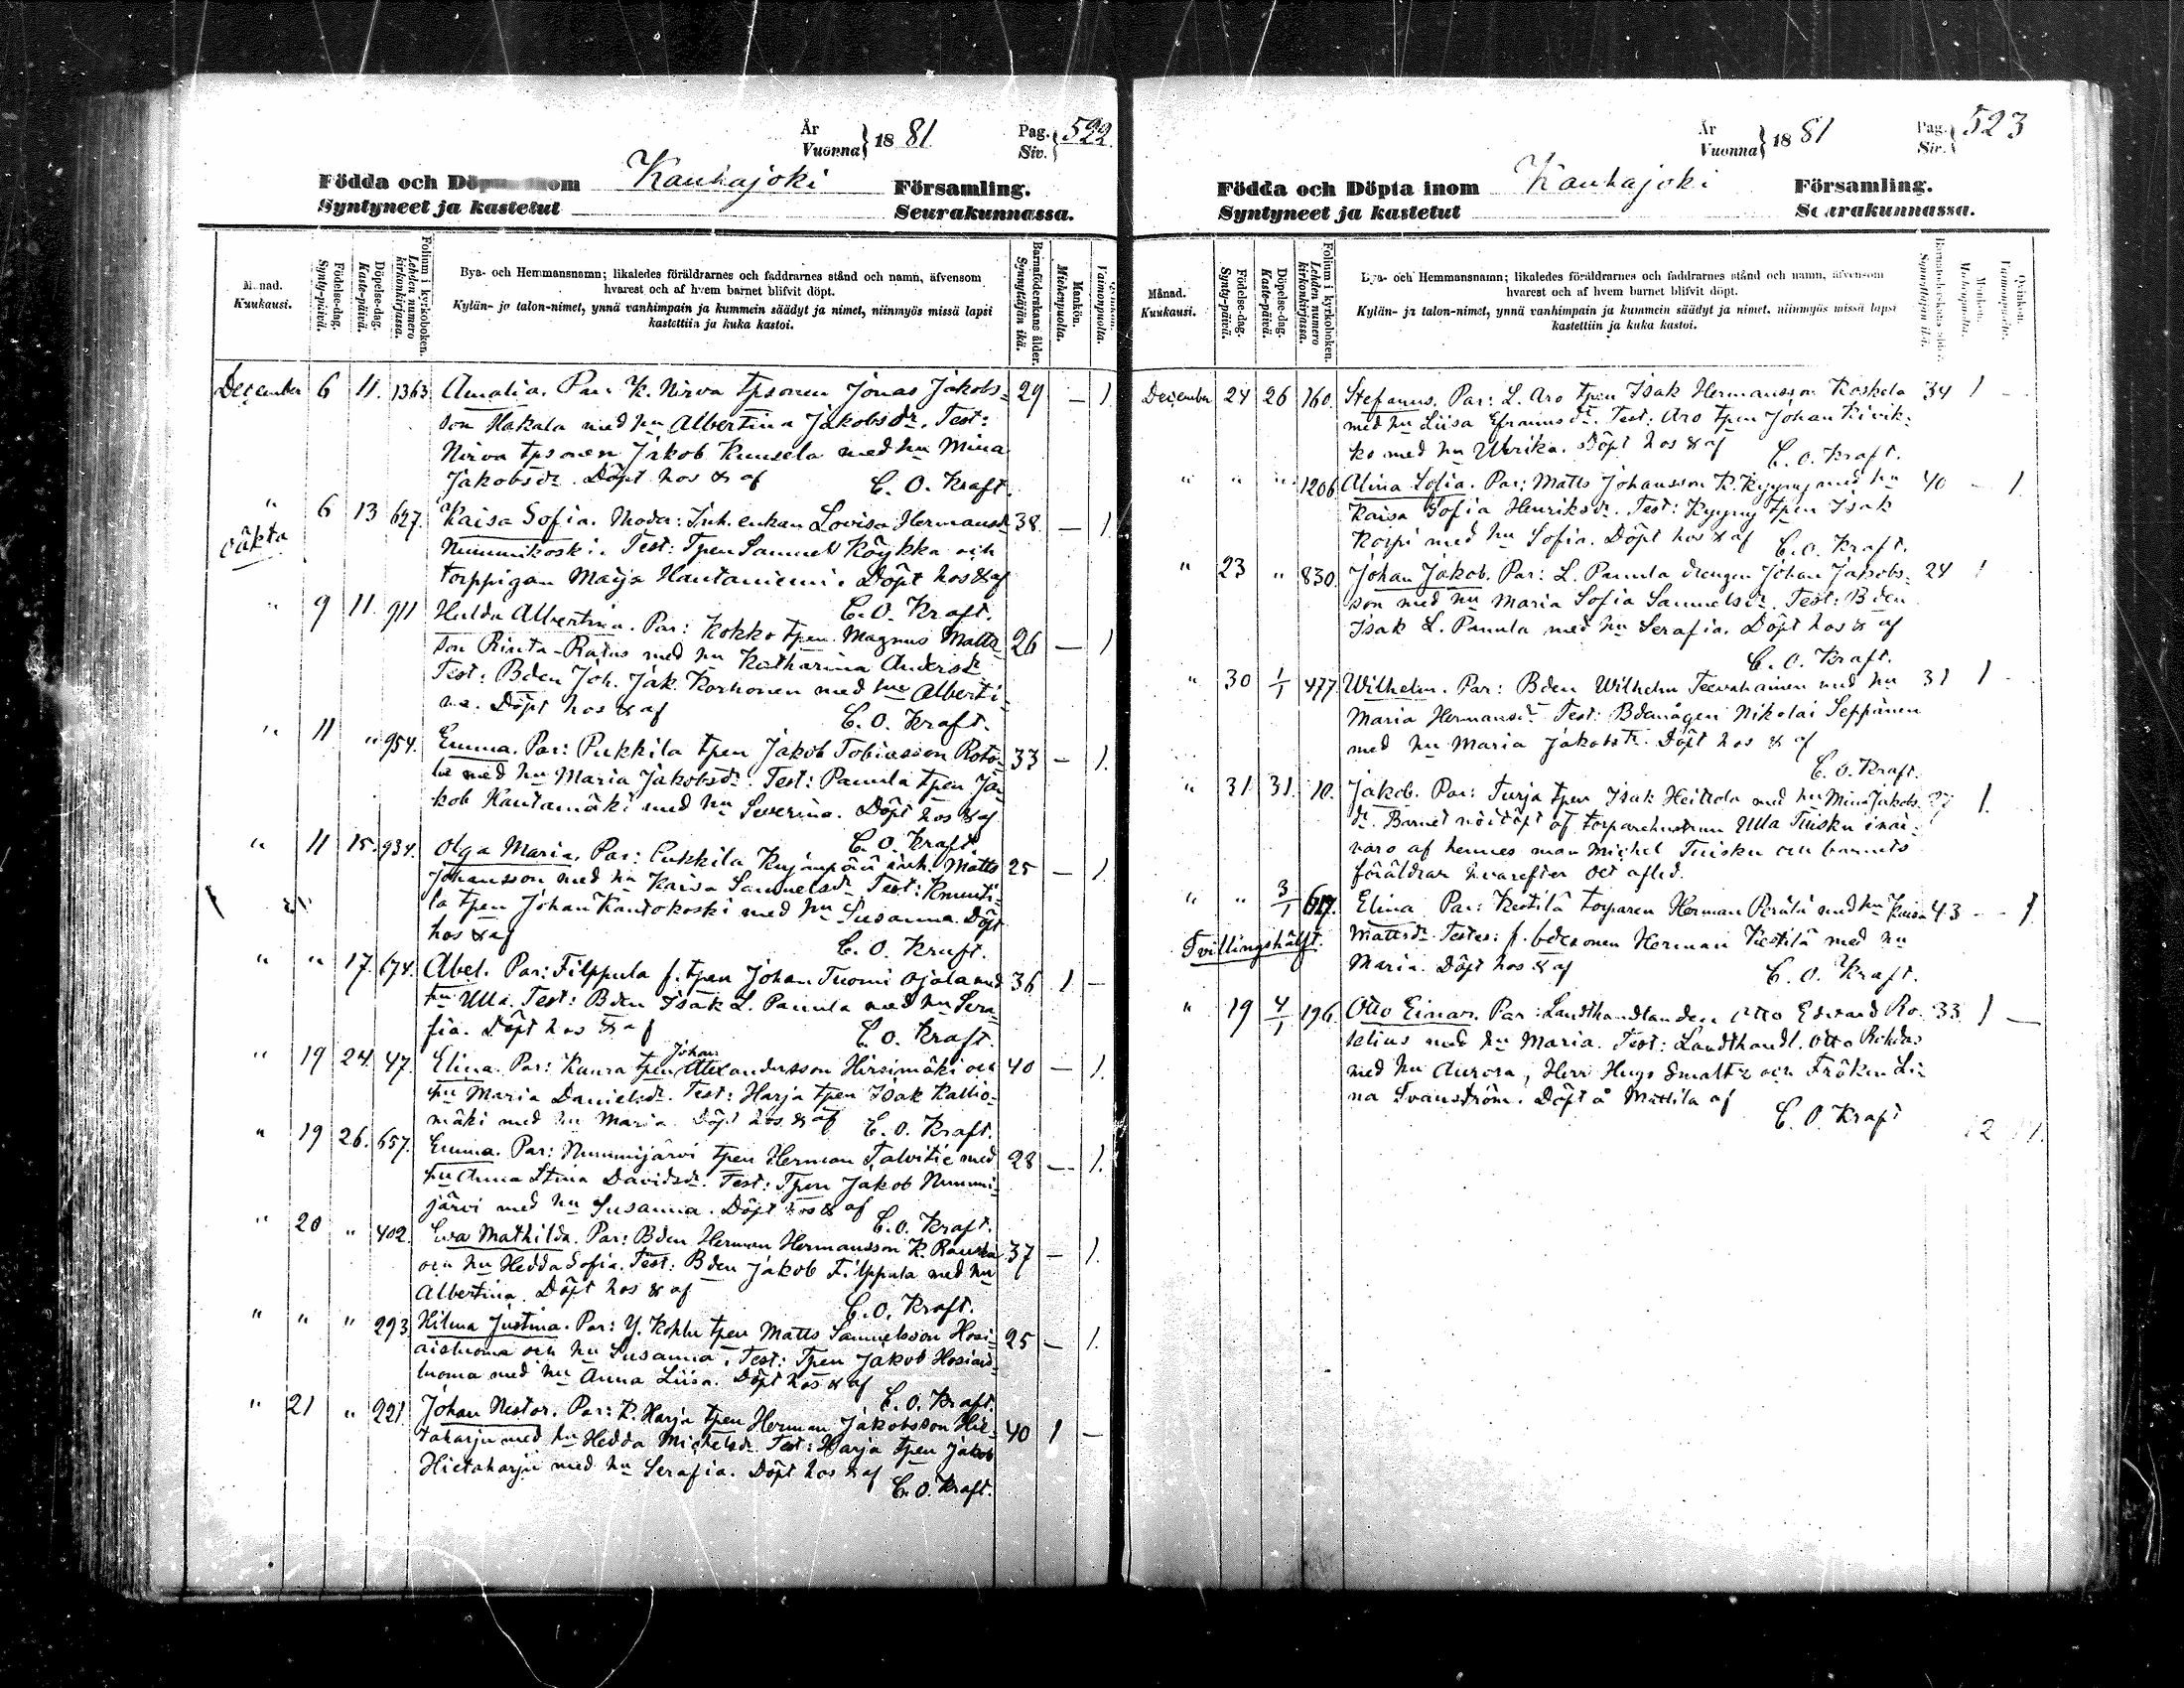 År
Vuonna } 1881. Pag. Siv. { 522
Födda och Döpta inom Kauhajoki Församling.
Syntyneet ja kastetut Seurakunnassa.
Månad. Kuukausi.
Födelse-dag. Synty-päivä.
Döpelse-dag. Kaste-päivä.
Folium i kyrkoboken. Lehden numero kirkonkirjassa.
Bya- och Hemmansnamn; likaledes föräldrarnes och faddrarnes stånd och namn, äfvensom
hvarest och af hvem barnet blifvit döpt.
Kylän- ja talon-nimet, ynnä vanhimpain ja kummein säädyt ja nimet, niinmyös missä lapsi
kastettiin ja kuka kastoi.
Barnaföderskans ålder. Synnyttäjän ikä.
Mankön. Miehenpuolia.
Qvinkön. Vaimonpuolia.
December 6 11. 1363 Amalia. Par: K. Nirva tpsonen Jonas Jakobs- 29 — 1.
son Hakala med hu Albertina Jakobsdr. Test:
Nirva tpsonen Jakob Kunsela med hu Mina
Jakobsdr. Döpt hos & af C. O. Kraft.
" 6 13 627. Kaisa Sofia. Moder: Inh. enkan Lovisa Hermansdr 38. — 1.
oäkta
Nummikoski. Test: Tpen Samuel Köykkä och
torppigan Maija Hautaniemi. Döpt hos & af
C. O. Kraft.
" 9 11. 911 Hulda Albertina. Par: Kokko tpen Magnus Matts- 26 — 1
son Rinta-Ratus med hu Katharina Andersdr
Test: Bden Joh. Jak. Korhonen med hu Alberti-
na. Döpt hos & af C. O. Kraft.
" 11 " 954. Emma. Par: Pukkila tpen Jakob Tobiasson Roto- 33 — 1.
la med hu Maria Jakobsdr. Test: Panula tpen Ja-
kob Rantamäki med hu Severina. Döpt hos & af
C. O. Kraft.
" 11 15. 934. Olga Maria. Par: Pukkila inh. Matts 25 — 1.
Johansson med hu Kaisa Samuelsdr. Test: Knuuti-
la tpen Johan Kantokoski med hu Susanna. Döpt
hos & af C. O. Kraft.
" " 17. 674. Abel. Par: Filppula f. tpen Johan Tuomi ojala med 36 1 —
hu Ulla. Test: Bden Isak L. Panula med hu Sera-
fia. Döpt hos & af C. O. Kraft.
Johan
" 19 24. 47. Elina. Par: Kaura tpen Alexandersson Hirsimäki och 40 — 1.
hu Maria Danielsdr. Test: Harja tpen Isak Kallio-
mäki med hu Maria. Döpt hos & af C. O. Kraft.
" 19 26. 657. Emma. Par: Nummijärvi tpen Herman Talvitie med 28 — 1.
hu Anna Stina Davidsdr. Test: Tpen Jakob Nummi-
järvi med hu Susanna. Döpt hos & af
C. O. Kraft.
" 20 " 402. Eva Mathilda. Par: Bden Herman Hermansson K. Rauska 37 — 1.
och hu Hedda Sofia. Test: Bden Jakob Filppula med hu
Albertina. Döpt hos & af
C. O. Kraft.
" " " 293 Hilma Justina. Par: Y. Kohlu tpen Matts Samuelsson Hosi- 25 — 1.
aisluoma och hu Susanna. Test: Tpen Jakob Hosiais-
luoma med hu Anna Liisa. Döpt hos & af
C. O. Kraft.
" 21 " 221. Johan Nestor. Par: K. Harja tpen Herman Jakobsson Hie- 40 1 —
taharju med hu Hedda Michelsdr. Test: Harja tpen Jakob
Hietaharju med hu Serafia. Döpt hos & af
C. O. Kraft.
År
Vuonna } 1881 Pag. Siv. { 523
Födda och Döpta inom Kauhajoki Församling.
Syntyneet ja kastetut Seurakunnassa.
Månad. Kuukausi.
Födelse-dag. Synty-päivä.
Döpelse-dag. Kaste-päivä.
Folium i kyrkoboken. Lehden numero kirkonkirjassa.
Bya- och Hemmansnamn; likaledes föräldrarnes och faddrarnes stånd och namn, äfvensom
hvarest och af hvem barnet blifvit döpt.
Kylän- ja talon-nimet, ynnä vanhimpain ja kummein säädyt ja nimet, niinmyös missä lapsi
kastettiin ja kuka kastoi.
December 24 26 160. Stefanus. Par: L. Aro tpen Isak Hermansson Koskela 34 1 —
med hu Liisa Efraimsdr. Test: Aro tpen Johan Kivik-
ko med hu Ulrika. Döpt hos & af
C. O. Kraft.
" " " 1206 Alina Sofia. Par: Matts Johansson K. Kyyny med hu 40 — 1
Kaisa Sofia Henriksdr. Test: Kyyny tpen Isak
Korpi med hu Sofia. Döpt hos & af C. O. Kraft.
" 23 " 830. Johan Jakob. Par: L. Panula drengen Johan Jakobs- 24 1
son med hu Maria Sofia Samuelsdr. Test: Bden
Isak L. Panula med hu Serafia. Döpt hos & af
C. O. Kraft.
" 30 1/1 477. Wilhelm. Par: Bden Wilhelm Teevahainen med hu 31 1
Maria Hermansdr. Test: Bdemågen Nikolai Seppänen
med hu Maria Jakobsdr. Döpt hos & af
C. O. Kraft.
" 31 31. 10. Jakob. Par: Turja tpen Isak Heittola med hu Mina Jakobs- 37 1.
dr. Barnet nöddöpt af torparehustrun Ulla Tuisku i när-
varo af hennes man Michel Tuisku och barnets
föräldrar hvarefter det afled.
" " 3/1 617. Elina Par: Kestilä torparen Herman Perälä med hu Kaisa 43 — 1
Tvillingshälft.
Mattsdr. Testes: f. bdesonen Herman Kestilä med hu
Maria. Döpt hos & af C. O. Kraft.
" 19 4/1 196. Otto Einar. Par: Landthandlanden Otto Edvard Ro- 33. 1 —
selius med hu Maria. Test: Landthandl. Otto
med hu Aurora, Herr Hugo Smaltz och Fröken Li-
na Svanström. Döpt å Mattila af
C. O. Kraft